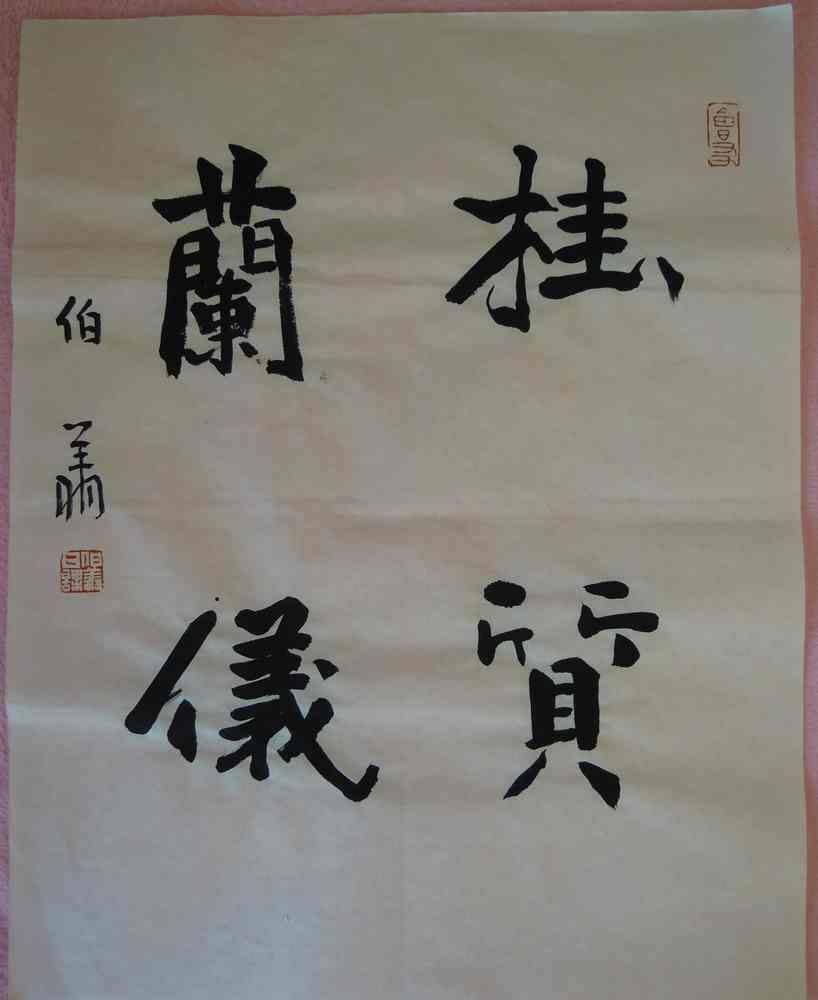 桂質
蘭儀
伯翥